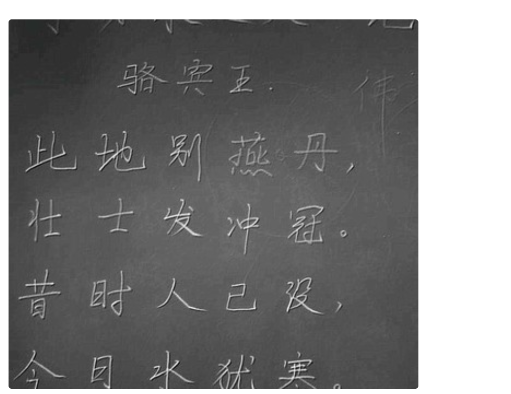 骆宾王.
伟
此地别燕丹,
壮士发冲冠。
昔时人已没,
今日水犹寒。